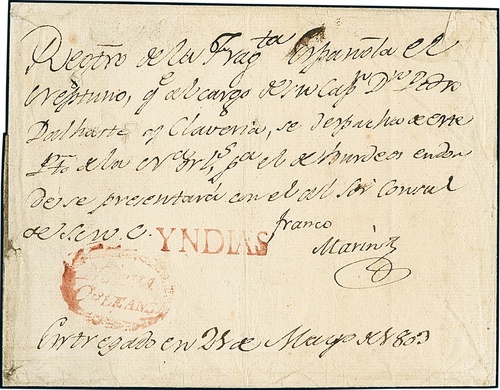 Regtro de la Fragta Española el
Neptuno, qe al cargo de su Capn Dn Pedro
Dalhaste y Claveria, se despacha de este
Pto de la Na Orls pa el de Burdeos en don
de se presentará con el al Sor Consul
de S. M. C. YNDIAS franco
Marin
NUEVA
ORLEANS
Entregado en 21 de Mayo de 1803